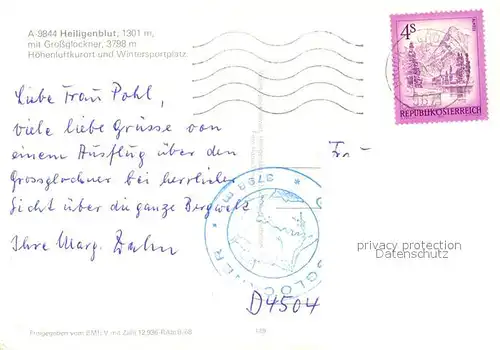 A-9844 Heiligenblut, 1301 m,
mit Großglockner, 3798 m
Höhenluftkurort und Wintersportplatz
4S
REPUBLIK ÖSTERREICH
Liebe Frau Pohl,
viele liebe Grüsse von
einem Ausflug über den
Grossglockner bei herrlicher
Sicht über die ganze Bergwelt
Ihre Marg. Dahn
Fra
* 3798 m *
privacy protection
Datenschutz
D4504
Freigegeben vom BMfLV mit Zahl